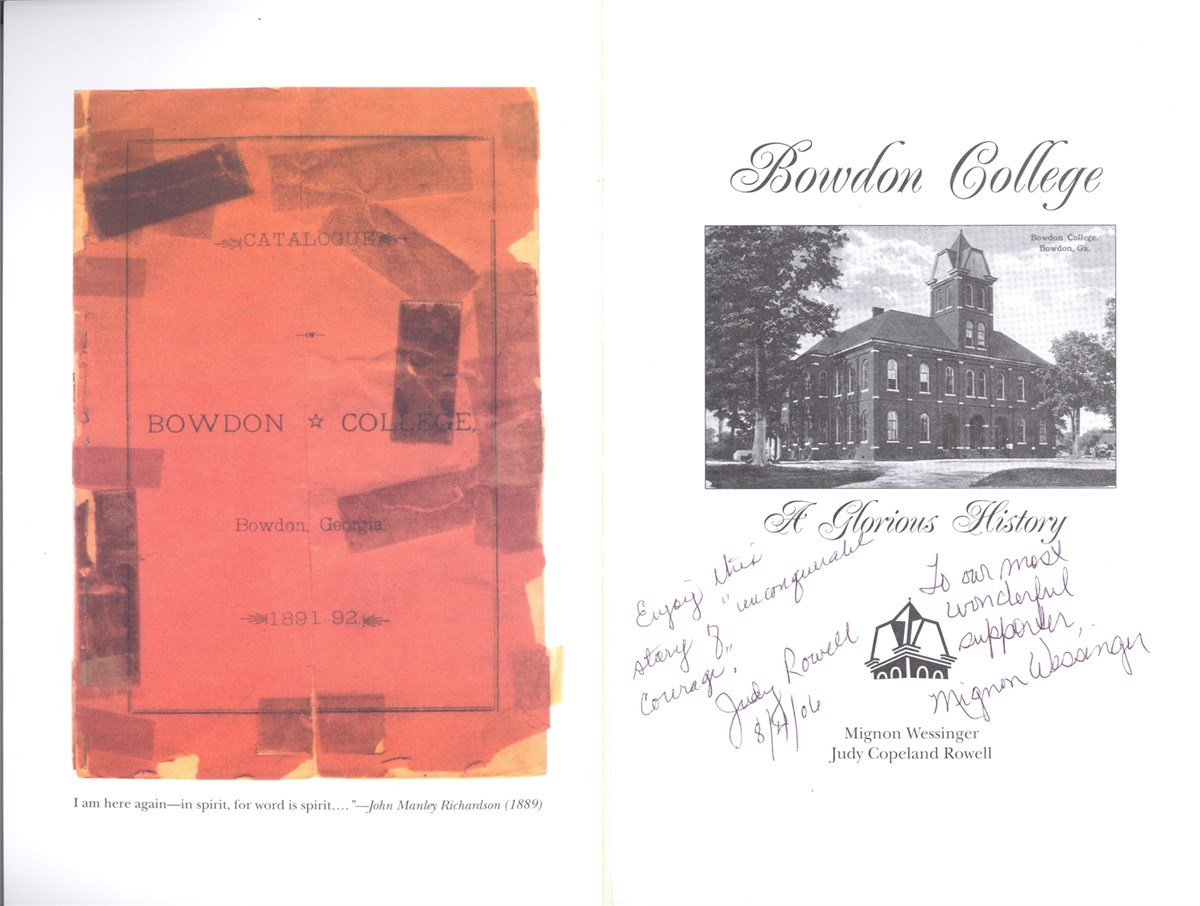 CATALOGUE
OF
BOWDON ☆ COLLEGE,
Bowdon, Georgia.
1891-92.
I am here again—in spirit, for word is spirit…."—John Manley Richardson (1889)
Bowdon College
Bowdon College.
Bowdon, Ga.
A Glorious History
Enjoy this
"unconquerable
story of
courage."
Judy Rowell
8/4/06
To our most
wonderful
supporter,
Mignon Wessinger
Mignon Wessinger
Judy Copeland Rowell